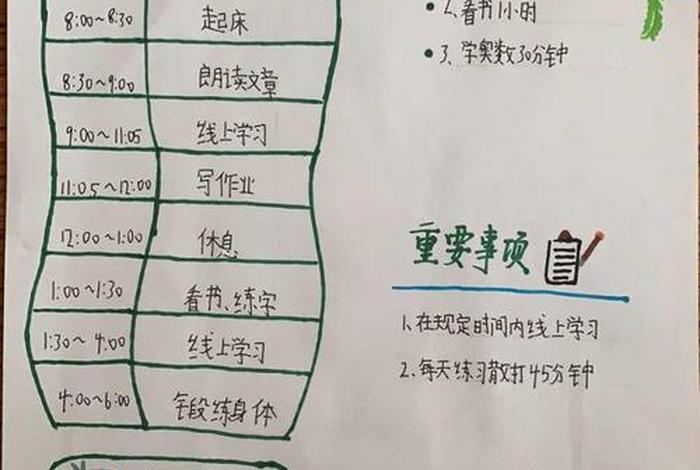 8:00~8:30 起床
8:30~9:00 朗读文章
9:00~11:05 线上学习
11:05~12:00 写作业
12:00~1:00 休息
1:00~1:30 看书、练字
1:30~4:00 线上学习
4:00~6:00 锻炼身体
•2、看书1小时
•3、学奥数30分钟
重要事项
1、在规定时间内线上学习
2、每天练习散打45分钟